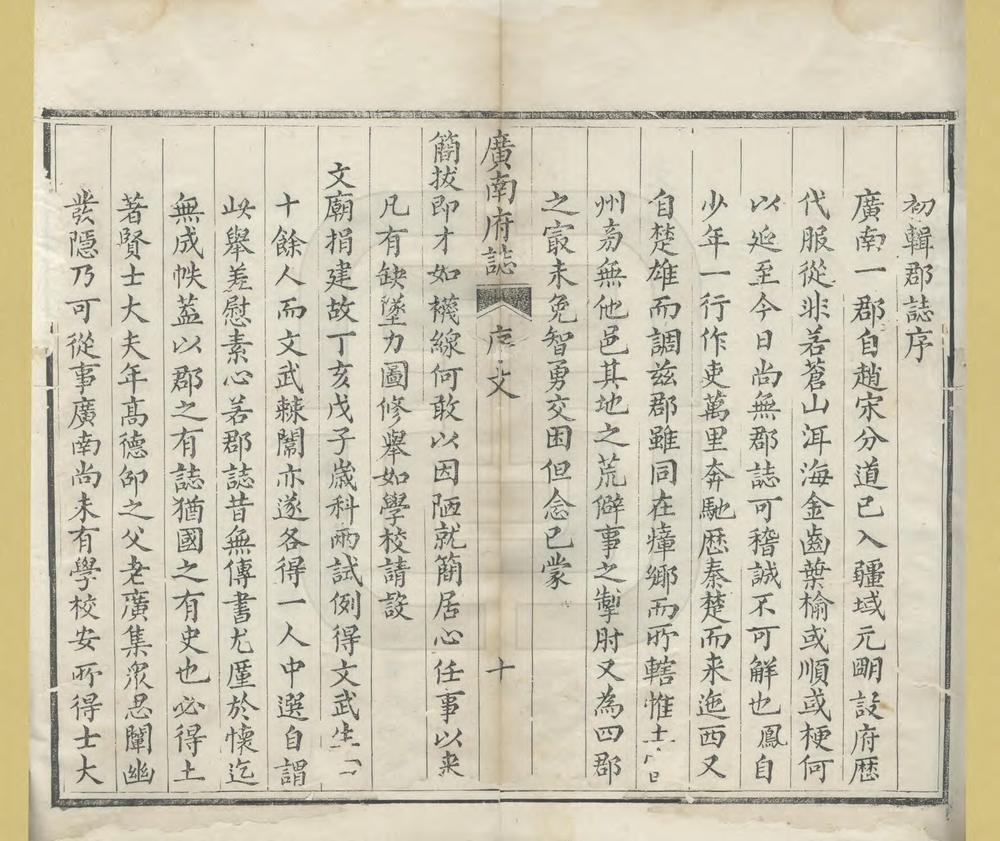 初輯郡誌序
廣南一郡自趙宋分道已入疆域元明設府歷
代服從非若蒼山洱海金齒葉榆或順或梗何
以延至今日尚無郡誌可稽誠不可解也鳳自
少年一行作吏萬里奔馳歷秦楚而来迤西又
自楚雄而調兹郡雖同在瘴鄉而所轄惟土
州旁無他邑其地之荒僻事之掣肘又為四郡
之最未免智勇交困但念已蒙
廣南府誌 序文 十
簡拔即才如襪線何敢以因陋就簡居心任事以来
凡有缺墜力圖修舉如學校請設
文廟捐建故丁亥戊子歲科兩試例得文武生
十餘人而文武棘闈亦遂各得一人中選自謂
此舉差慰素心若郡誌昔無傳書尤廑於懷迄
無成帙蓋以郡之有誌猶國之有史也必得土
著賢士大夫年高德卲之父老廣集衆思闡幽
發隱乃可從事廣南尚未有學校安所得士大